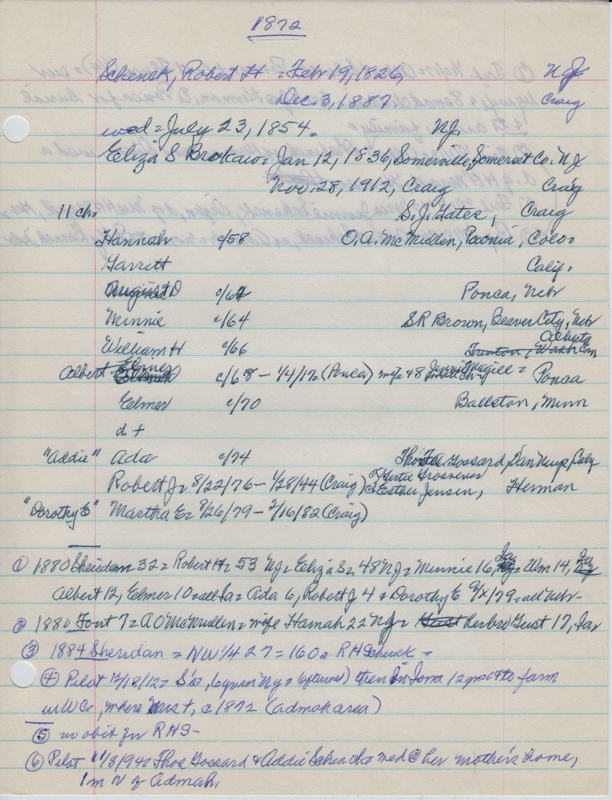 1872
Schenck, Robert H = Feb 19, 1826, NJ
Dec. 3, 1887 Craig
wed = July 23, 1854 = NJ
Eliza S Brokaw = Jan 12, 1836, Somerville, Somerset Co. NJ
Nov. 28, 1912, Craig Craig
11 chs S.J. Gates, Craig
Hannah c/58 O.A. McMullen, Paonia, Colo=
Garrett Calif.
August D c/62 Ponca, Nebr
Minnie c/64 SR Brown, Beaver City, Nebr
William H c/66 Alberta Can
Albert c/68 - 1/4/12 (Ponca) Ponca
Elmer c/70 Ballston, Minn
d +
"Addie" Ada c/74 Thos Gossard,
Robert J = 8/22/76 - 1/28/44 (Craig) Esther Jensen, Herman
"Dorothy E" Martha E = 8/26/79 - 2/16/82 (Craig)
① 1880 Sheridan 32 = Robert H = 53 NJ = Eliza S = 48 NJ = Minnie 16, = Wm 14,
Albert 12, Elmer 10 = all Ia = Ada 6, Robert J 4 & Dorothy E 9/x/79 = all Nebr-
② 1880 Font 7 = A O McMullen = wife Hannah 22 NJ = 17, Ia
③ 1884 Sheridan = NW 1/4 27 = 160a R H Schenck =
④ Pilot 12/18/12 = then in Iowa 12 yrs & to farm
in WCo, where , c 1872 (Admah area)
⑤ no obit for RHS-
⑥ Pilot Thos Gossard & Addie Schenck med @ her mother's home,
1m N of Admah,